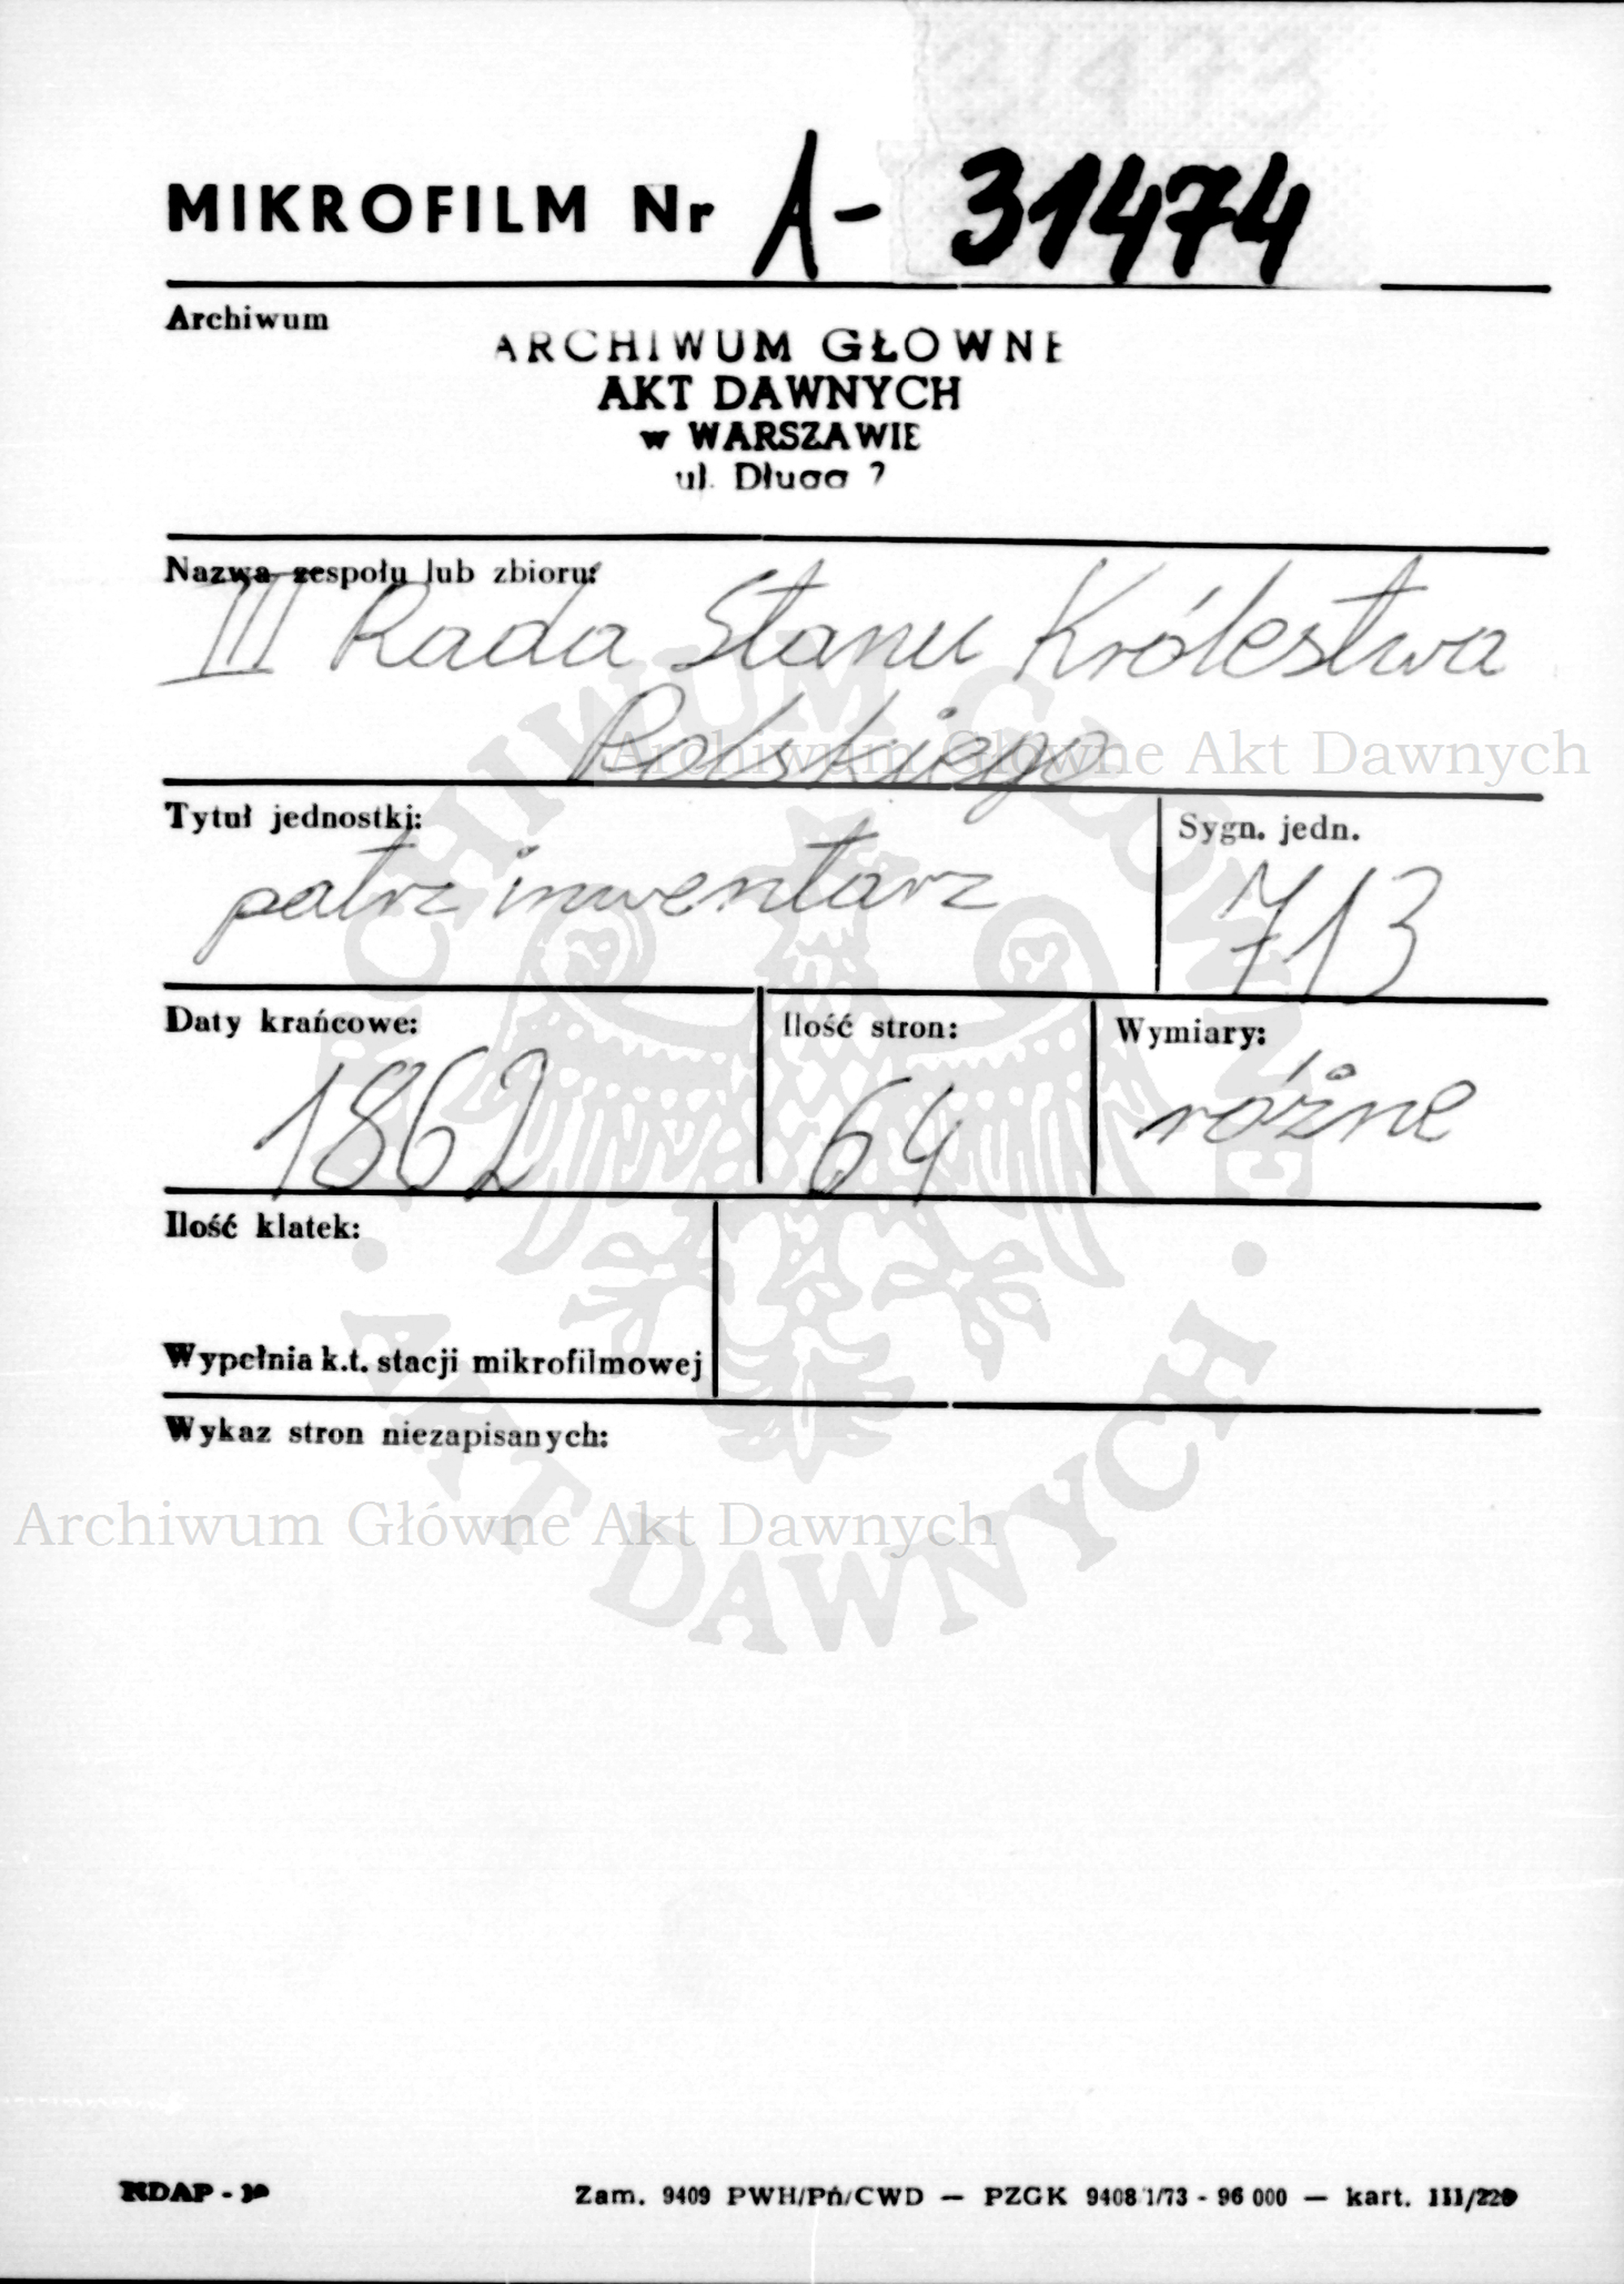 MIKROFILM Nr A- 31474
Archiwum
ARCHIWUM GŁÓWNE
AKT DAWNYCH
w WARSZAWIE
ul. Długa 7
Nazwa zespołu lub zbioru:
III Rada Stanu Królestwa
Polskiego
Archiwum Główne Akt Dawnych
Tytuł jednostki:
patrz inwentarz
Sygn. jedn.
713
Daty krańcowe:
1862
Ilość stron:
64
Wymiary:
różne
Ilość klatek:
Wypełnia k.t. stacji mikrofilmowej
Wykaz stron niezapisanych:
Archiwum Główne Akt Dawnych
ARCHIWUM GŁÓWNE
• AKT DAWNYCH •
NDAP -
Zam. 9409 PWH/Pń/CWD — PZGK 9408 1/73 - 96 000 — kart. III/220